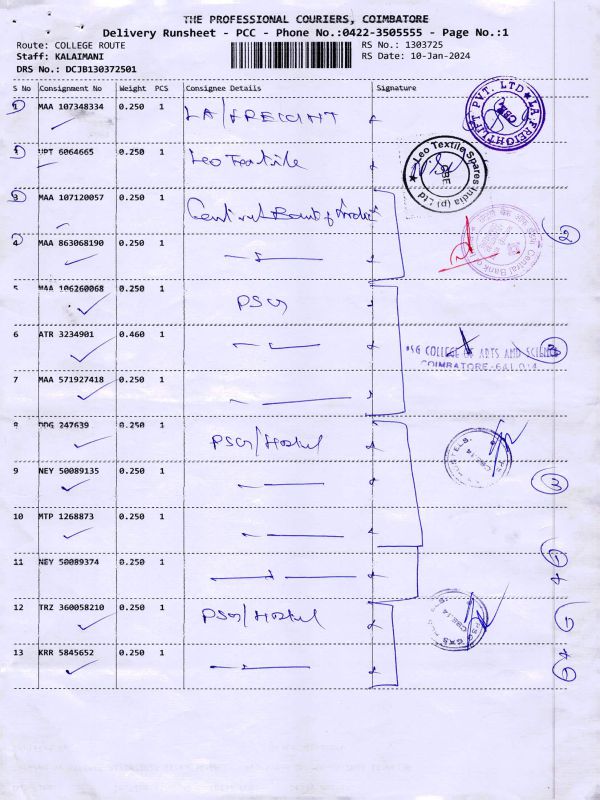 THE PROFESSIONAL COURIERS, COIMBATORE
Delivery Runsheet - PCC - Phone No.:0422-3505555 - Page No.:1
Route: COLLEGE ROUTE RS No.: 1303725
Staff: KALAIMANI RS Date: 10-Jan-2024
DRS No.: DCJB130372501
S No Consignment No Weight PCS Consignee Details Signature
MAA 107348334 0.250 1 LA/FREIGHT
LA FREIGHTLIFT PVT. LTD CBE
UPT 6064665 0.250 1 Leo Textile
Leo Textile Spares India (p) Ltd CBE
3 MAA 107120057 0.250 1 Central Bank of India
Central Bank
4 MAA 863068190 0.250 1
2
5 MAA 106260068 0.250 1 PSG
6 ATR 3234901 0.460 1
PSG COLLEGE OF ARTS AND SCIENCE
COIMBATORE-641 014
7 MAA 571927418 0.250 1
8 DDG 247639 0.250 1 PSG/Hostel
9 NEY 50089135 0.250 1
3
10 MTP 1268873 0.250 1
11 NEY 50089374 0.250 1
12 TRZ 360058210 0.250 1 PSG/Hostel
13 KRR 5845652 0.250 1